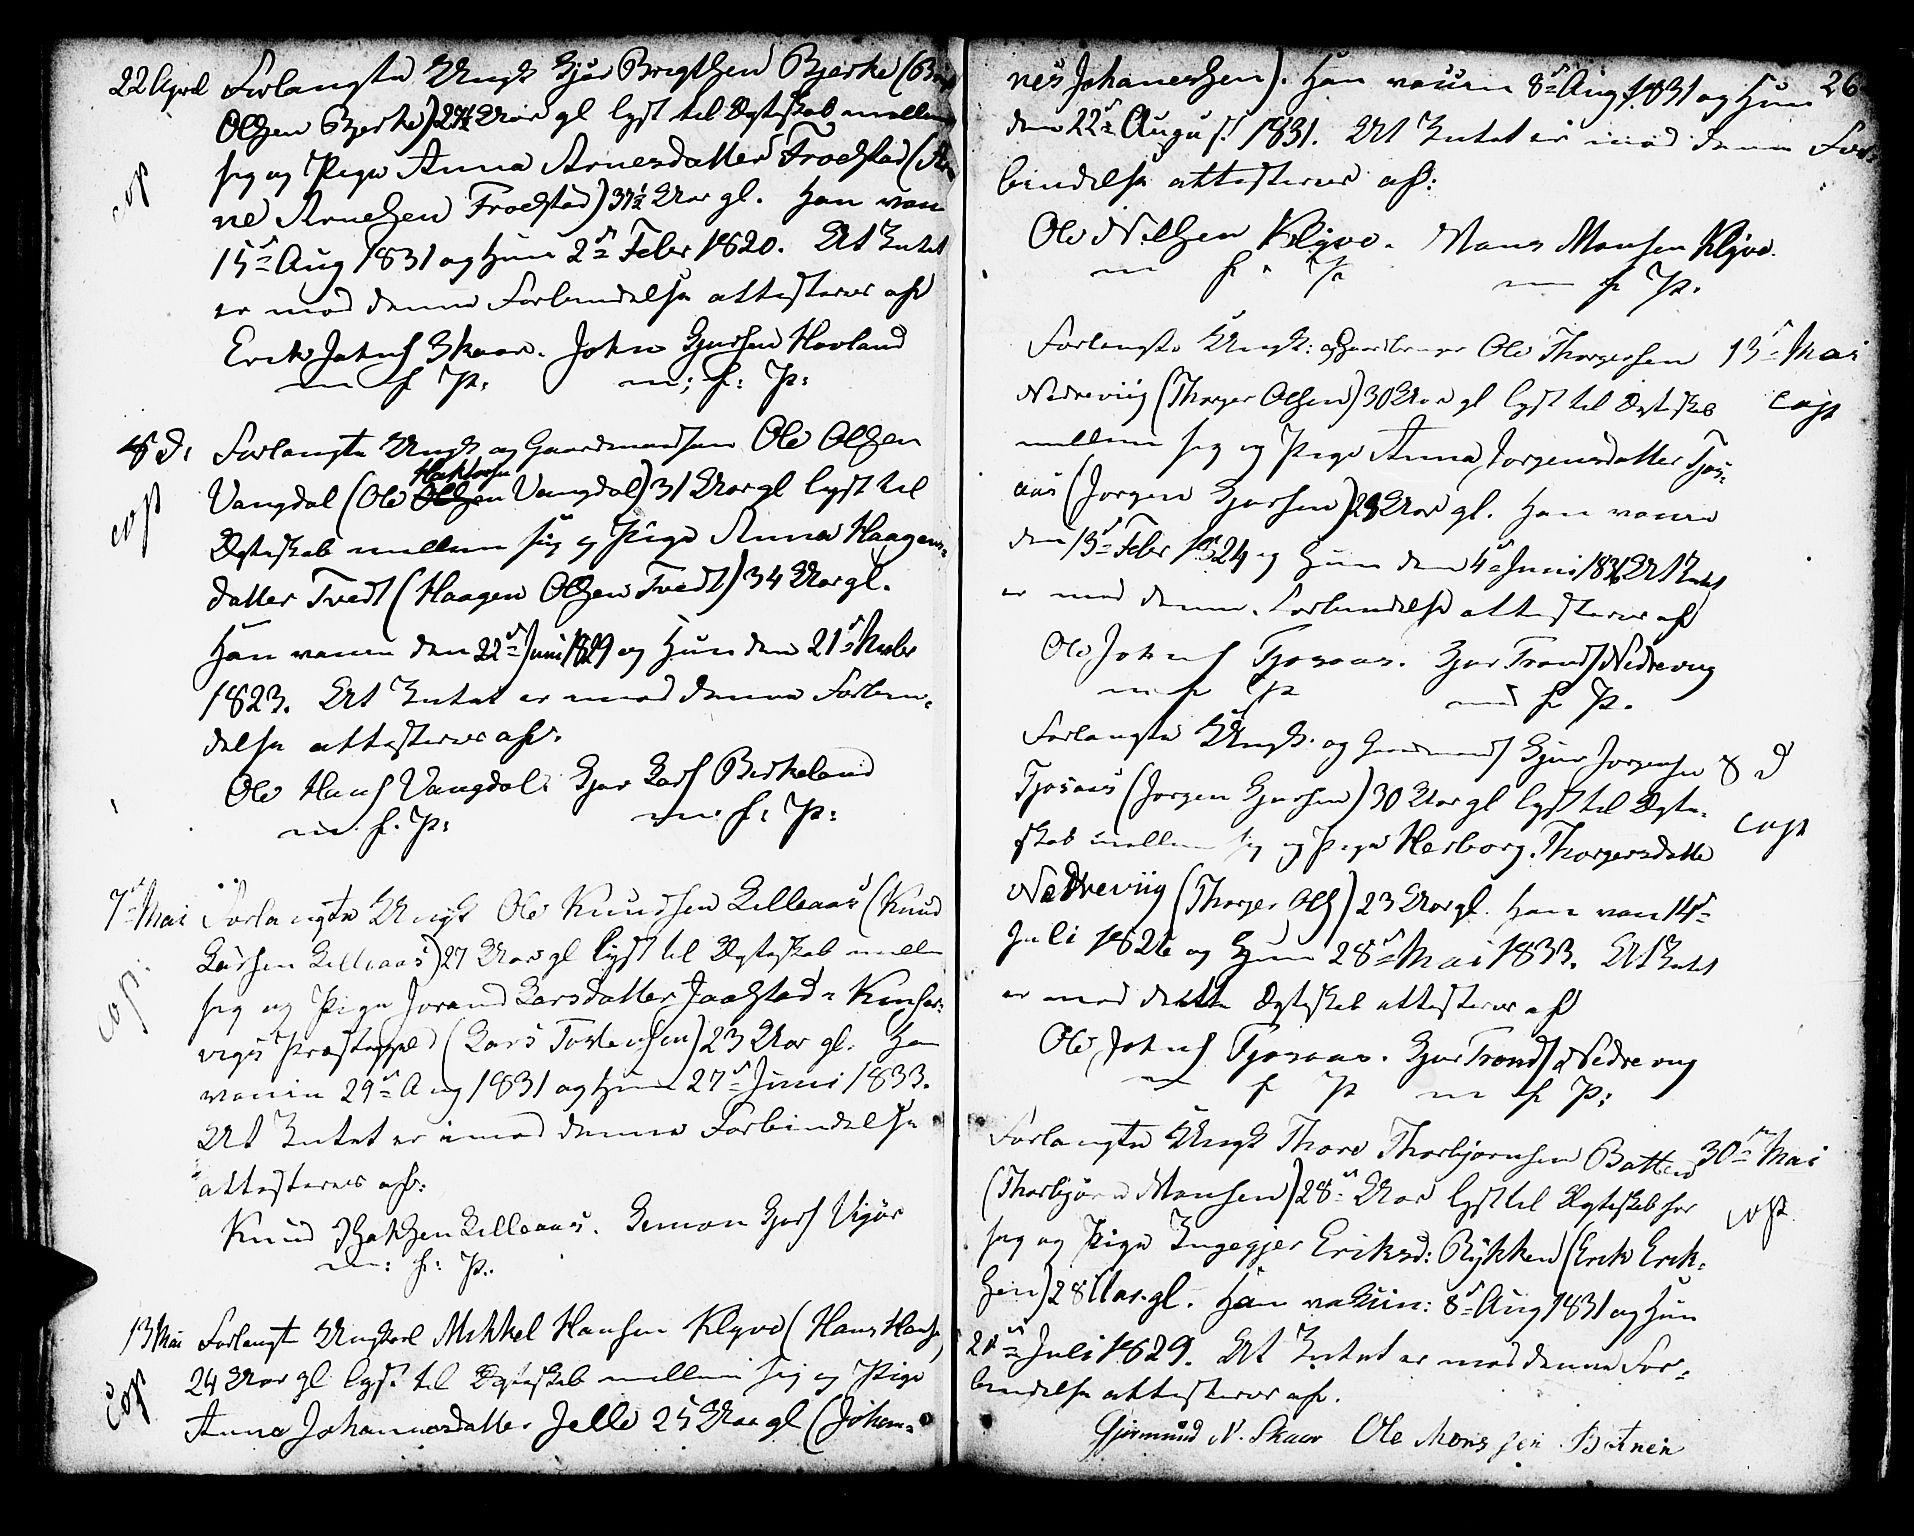 22 April Forlangte Ungk Gjør Brigtsen Bjerke (
Olsen Bjerke) Aar gl lyst til Egteskab mellem
sig og Pige Anna Arnesdatter Froestad (Ar
ne Arnesen Froestad) 37½ Aar gl. Han vacc
15de Aug 1831 og Hun 2den Febr 1820. At Intet
er mod denne Forbindelse attesterer af
Erik Johns Skaar. John Gjørsen Havland
m f P: m: f: P:
cop
s D: Forlangte Ungk og Gaardmandssøn Ole Olsen
Haktorsen
Vangdal (Ole Olsen Vangdal) 31 Aar gl lyst til
Egteskab mellem sig og Pige Anna Haagens-
datter Tvedt (Haagen Olsen Tvedt) 34 Aar gl.
Han vaccn den 22de Juni 1829 og Hun den 21de
1823. At Intet er mod denne Forbin-
delse attesterer af.
Ole Hans Vangdal. Gjør Lars Birkeland
m. f. P: m: f: P:
cop
7de Mai Forlangte Ungk Ole Knudsen Lilleaas (Knud
Larsen Lilleaas) 27 Aar gl lyst til Egteskab mellm
sig og Pige Jorand Larsdatter Jaastad i Kinser-
vigs Præstegjeld (Lars Torstensen) 23 Aar gl. Han
vaccin 29de Aug 1831 og Hun 27de Juni 1833.
At Intet er imod denne Forbindelse
attesteres af:
Knud Lilleaas. Simon Gjørs Vigør
m: f: P:
cop.
13 Mai Forlangt Ungkarl Mikkel Hansen Klyve (Hans Hanse)
24 Aar gl lyst til Egteskab mellem sig og Pige
Anna Johannesdatter Jelle 25 Aar gl (Johan-
cop
26
nes Johanessen). Han vaccin 8de Aug 1831 og Hun
den 22de August 1831. At Intet er imod denne For-
bindelse attesterer af:
Ole Nilsen Klyve. Mons Monsen Klyve.
m f P m f P.
Forlangte Ungk: og Gaardbruger Ole Thorgersen 13de Mai
Nedreviig (Thorger Olsen) 30 Aar gl lyst til Egteskab copt
mellem sig og Pige Anna Jorgensdatter Tjos-
aas (Jorgen Gjørsen) Aar gl. Han vaccn
den 13de Febr 1824 og Hun den 4de Juni At Intet
er mod denne Forbindelse attesterer af
Ole Johns Tjosaas. Gjør Tronds Nedreviig
m f P m f P.
Forlangte Ungk: og Gaardmands Gjør Jorgensen s D
Tjosaas (Jorgen Gjørsen) 30 Aar gl lyst til Egte-
skab mellem sig og Pige Herborg Thorgersdatte copt
Nedreviig (Thorger Ols) 23 Aar gl. Han vacc 14de
Juli 1826 og Hun 28de Mai 1833. At Intet
er mod dette Egteskab attesterer af
Ole Johns Tjosaas. Gjør Tronds Nedreviig
m f P m f P:
Forlangte Ungk Thore Thorbjørnsen Botten 30de Mai
(Thorbjørn Monsen) 28de Aar lyst til Egteskab for
sig og Pige Ingegjer Eriksd: Rykken (Erik Erik- copt
sen) 28 Aar gl. Han vaccin: 8de Aug 1831 og Hun
Juli 1829. At Intet er mod denne For-
bindelse attesterer af.
Gjermund N. Skaar Ole Monssen Botnen